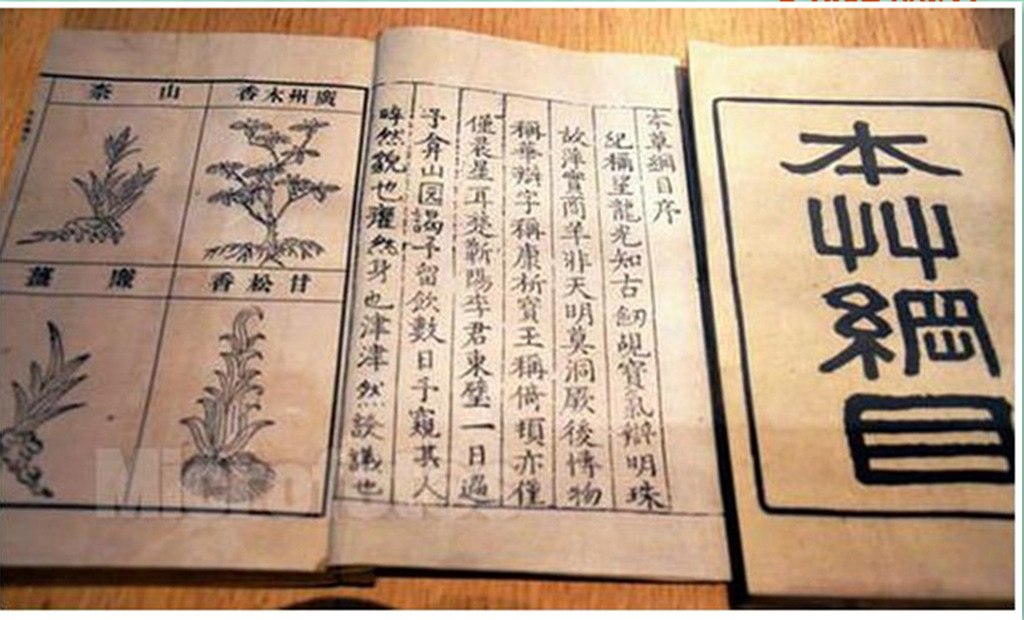 本艸綱目
本草綱目序
紀稱望龍光知古劒覘寶氣辯明珠
故萍實商羊非天明莫洞厥後博物
稱華辯字稱康析寶玉稱倚頓亦僅
僅晨星耳楚蘄陽李君東璧一日過
予弇山园謁予留飲數日予窺其人
睟然貌也癯然身也津津然談議也
廣州木香
山柰
甘松香
廉薑